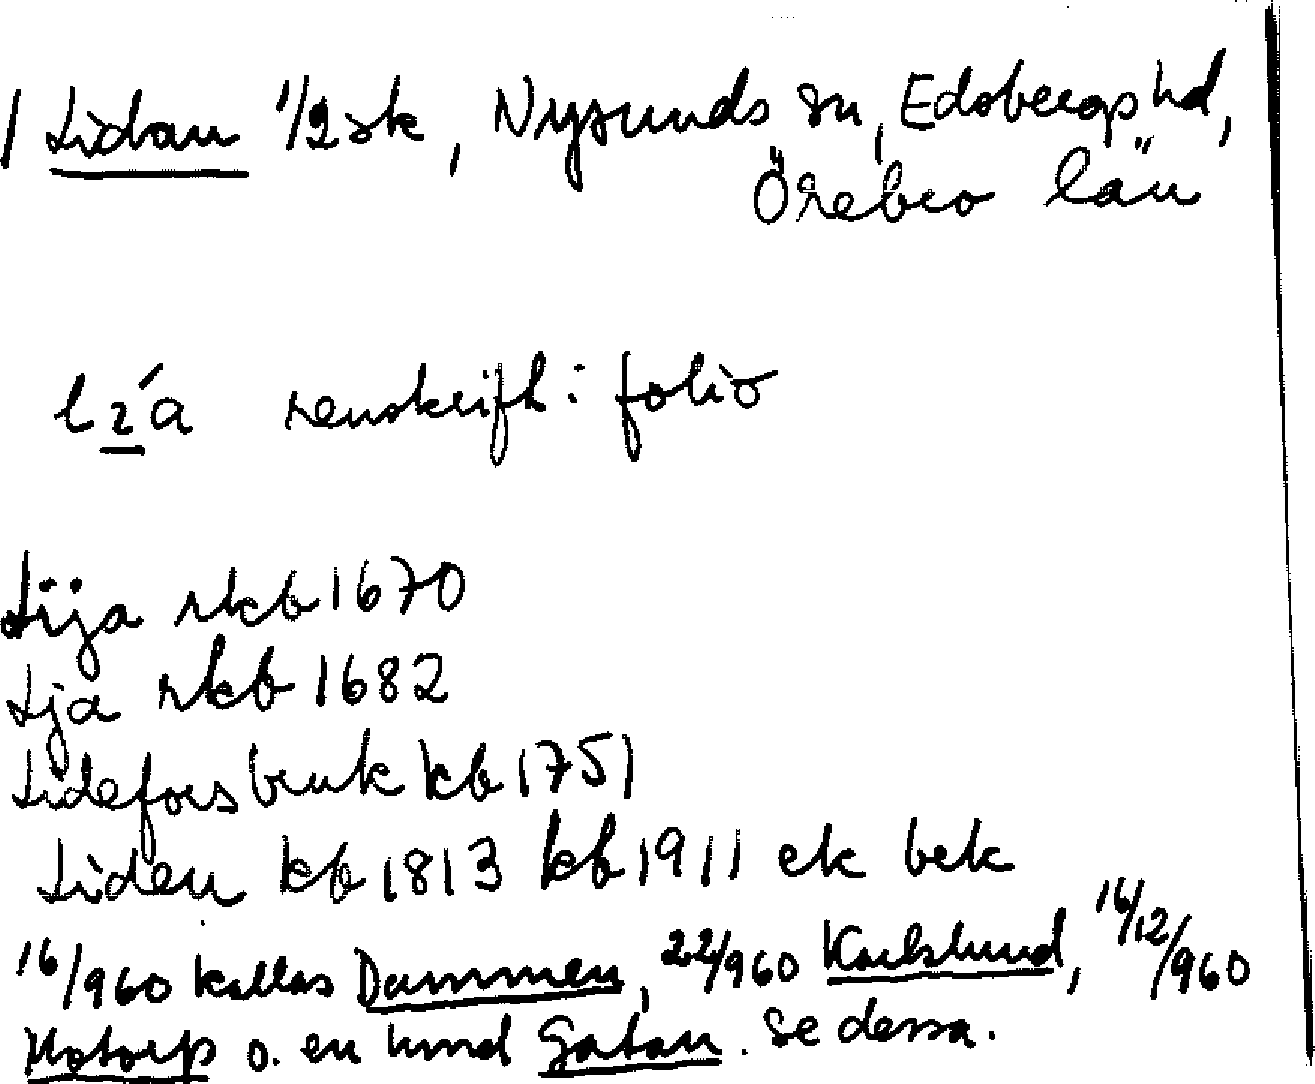 / Lidan 1/2 sk, Nysunds sn, Edsbergs hd,
Örebro län
renskrift: folio
Lija rkb 1670
Lja rkb 1682
Lidefors bruk kb 1751
Liden kb 1813 kb 1911 ek bek
16/960 kallas Dammen, 22/960 Karlslund, 16/12/960
Motorp o. en lund Gatan. Se dessa.